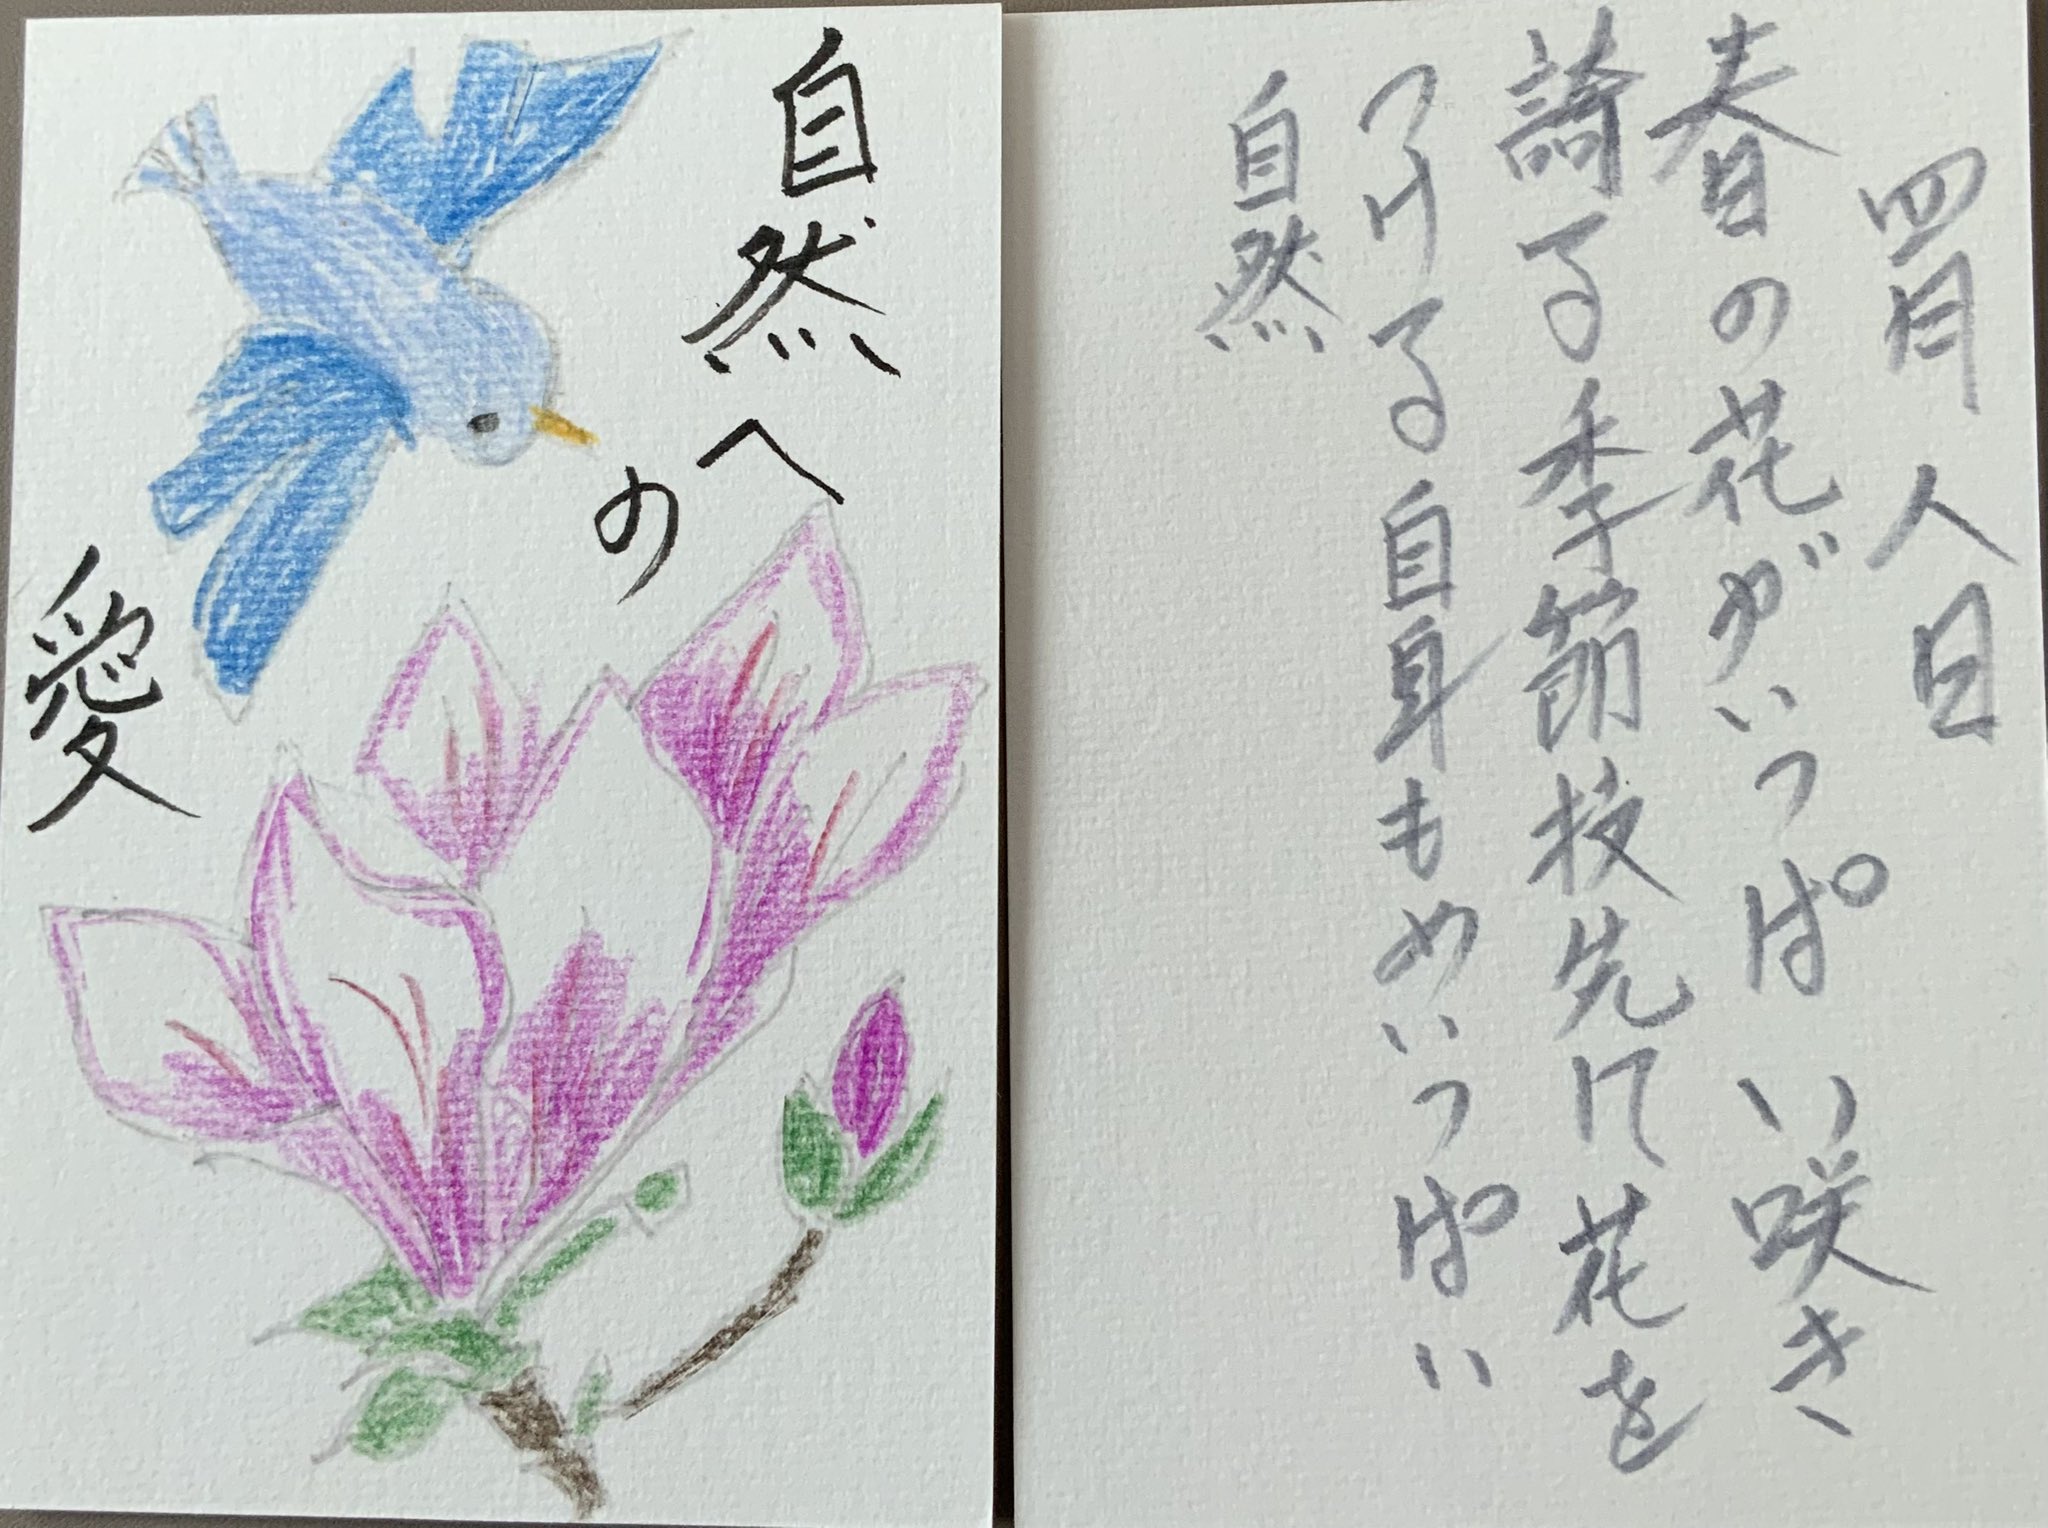 自然への愛
四月八日
春の花がいっぱい咲き
誇る季節枝先に花を
つける自身もめいっぱい
自然